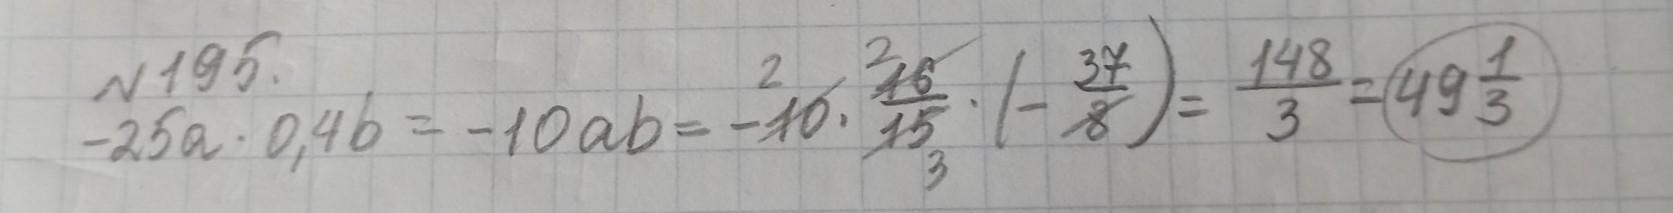 №195.
-25a · 0,4b = -10ab = -10 · 16/15 · (- 37/8) = 148/3 = 49 1/3